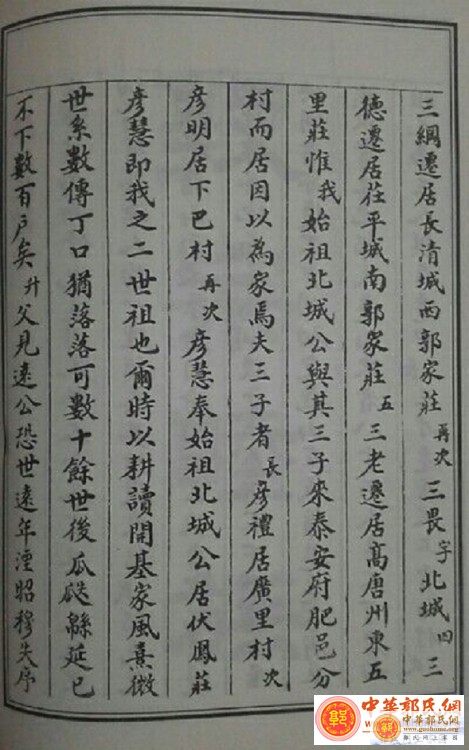 三綱遷居長清城西郭家莊再次三畏字北城四三
德遷居茌平城南郭家莊五三老遷居高唐州東五
里莊惟我始祖北城公與其三子來泰安府肥邑分
村而居因以為家焉夫三子者長彥禮居廣里村次
彥明居下巴村再次彥慧奉始祖北城公居伏鳳莊
彥慧即我之二世祖也爾時以耕讀開基家風熹微
世系數傳丁口猶落落可數十餘世後瓜瓞緜延已
不下數百戶矣升父見遠公恐世遠年湮昭穆失序
郭
中華郭氏網
www.guohome.org
郭氏網上家園